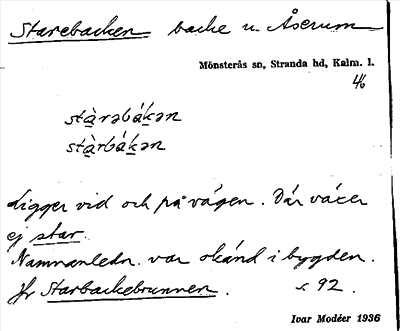 Starebacken backe u. Åserum
Mönsterås sn, Stranda hd, Kalm. l.
stàrəbákən
stàrbákən
Ligger vid och på vägen. Där växer
ej star.
Namnanledn. var okänd i bygden.
Jfr Starbackebrunnen. s. 92.
Ivar Modéer 1936